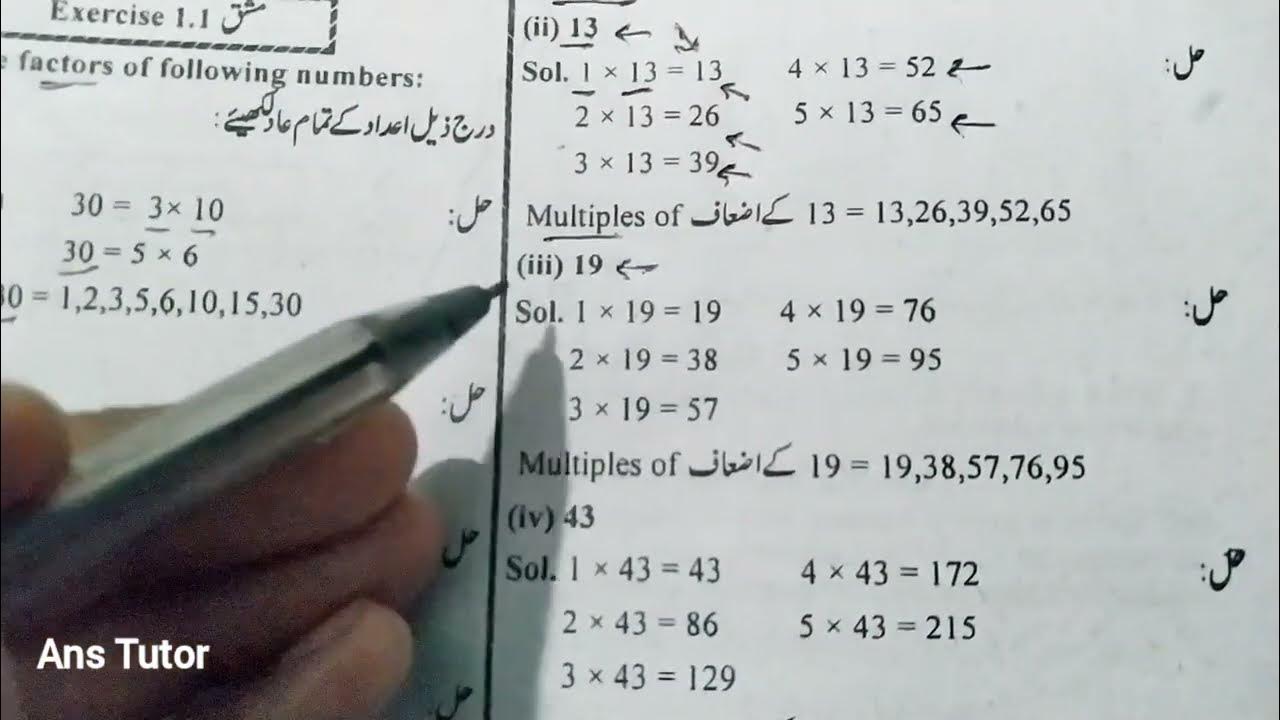 Exercise 1.1 مشق
factors of following numbers:
درج ذیل اعداد کے تمام عاد لکھیئے:
30 = 3 × 10 حل:
30 = 5 × 6
30 = 1,2,3,5,6,10,15,30
حل:
حل
حل
(ii) 13
Sol. 1 × 13 = 13 4 × 13 = 52 حل:
2 × 13 = 26 5 × 13 = 65
3 × 13 = 39
Multiples of کے اضعاف 13 = 13,26,39,52,65
(iii) 19
Sol. 1 × 19 = 19 4 × 19 = 76 حل:
2 × 19 = 38 5 × 19 = 95
3 × 19 = 57
Multiples of کے اضعاف 19 = 19,38,57,76,95
(iv) 43
Sol. 1 × 43 = 43 4 × 43 = 172 حل:
2 × 43 = 86 5 × 43 = 215
3 × 43 = 129
Ans Tutor